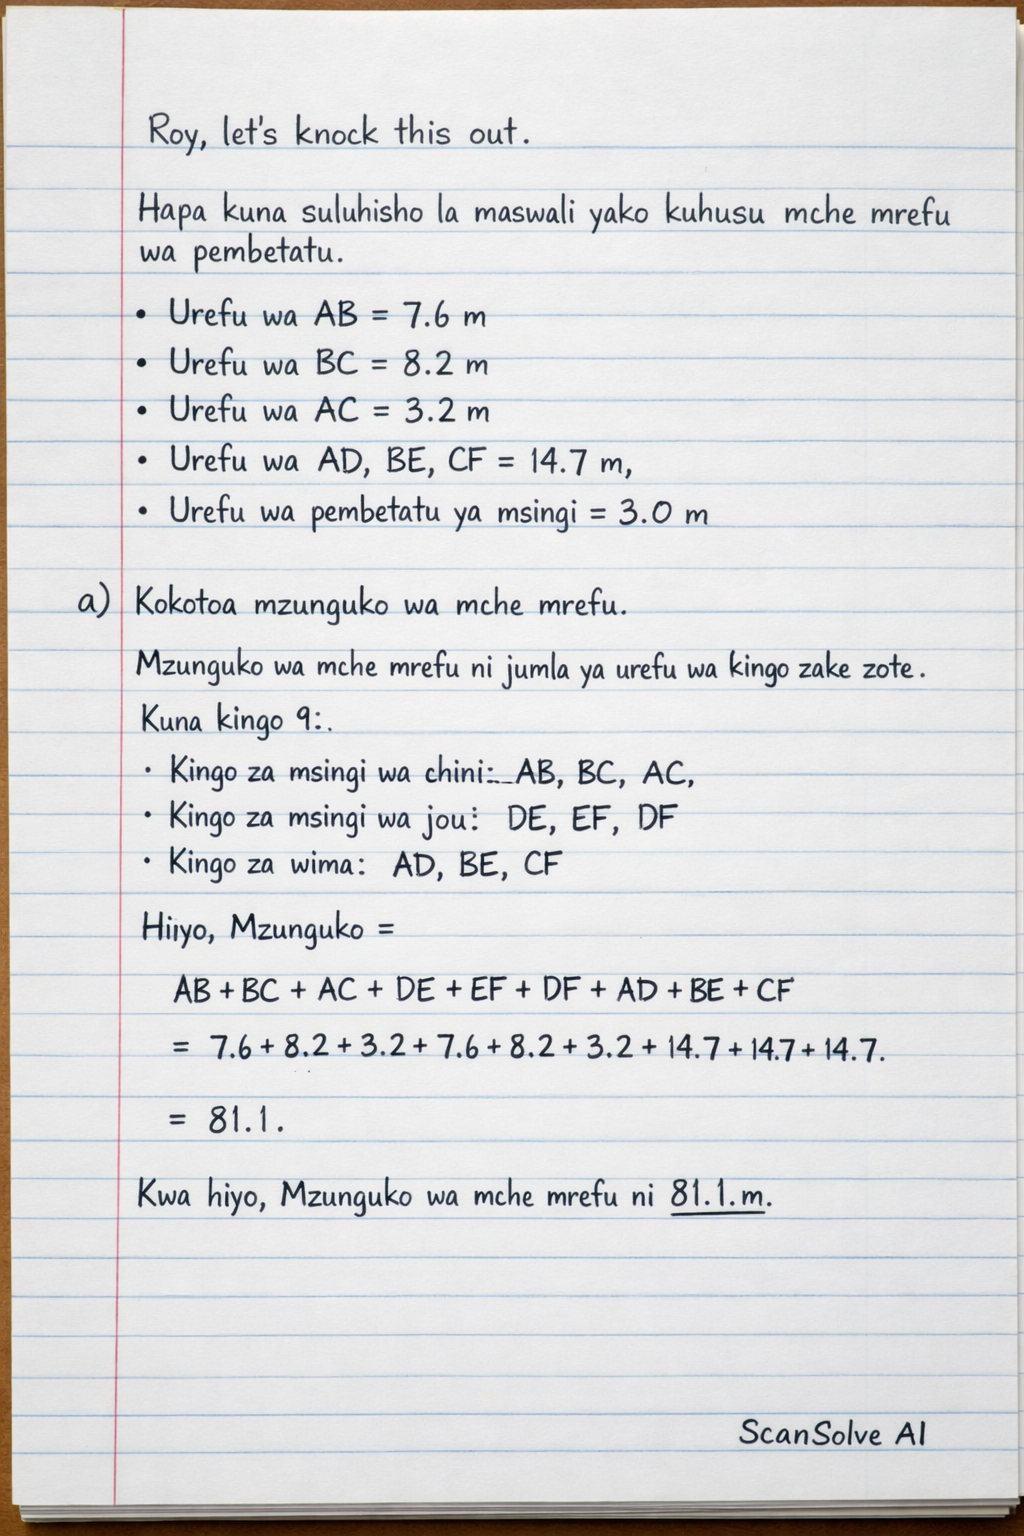 Roy, let's knock this out.
Hapa kuna suluhisho la maswali yako kuhusu mche mrefu
wa pembetatu.
• Urefu wa AB = 7.6 m
• Urefu wa BC = 8.2 m
• Urefu wa AC = 3.2 m
• Urefu wa AD, BE, CF = 14.7 m,
• Urefu wa pembetatu ya msingi = 3.0 m
a) Kokotoa mzunguko wa mche mrefu.
Mzunguko wa mche mrefu ni jumla ya urefu wa kingo zake zote.
Kuna kingo 9:.
• Kingo za msingi wa chini: AB, BC, AC,
• Kingo za msingi wa jou: DE, EF, DF
• Kingo za wima: AD, BE, CF
Hiiyo, Mzunguko =
AB + BC + AC + DE + EF + DF + AD + BE + CF
= 7.6 + 8.2 + 3.2 + 7.6 + 8.2 + 3.2 + 14.7 + 14.7 + 14.7.
= 81.1.
Kwa hiyo, Mzunguko wa mche mrefu ni 81.1.m.
ScanSolve AI